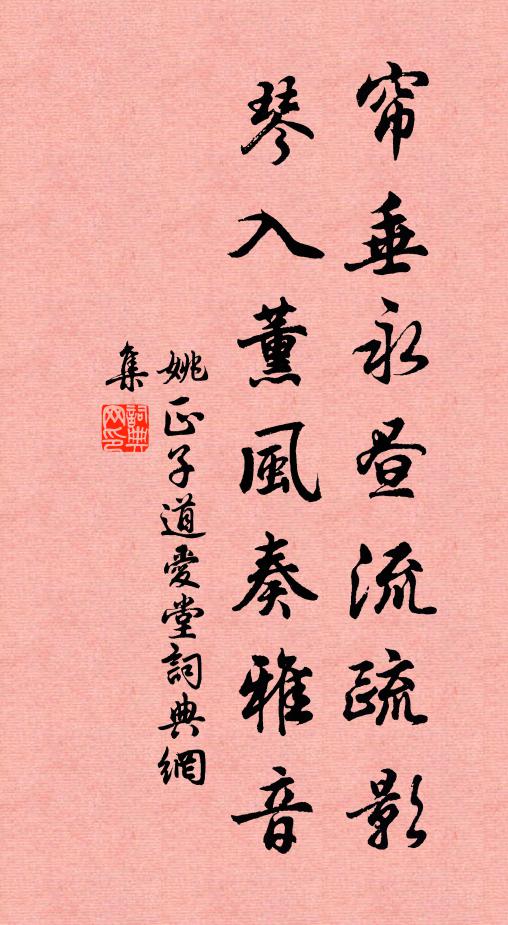 帘垂永昼流疏影
琴入薰風奏雅音
姚正子道愛堂詞典網
集
詞典网印